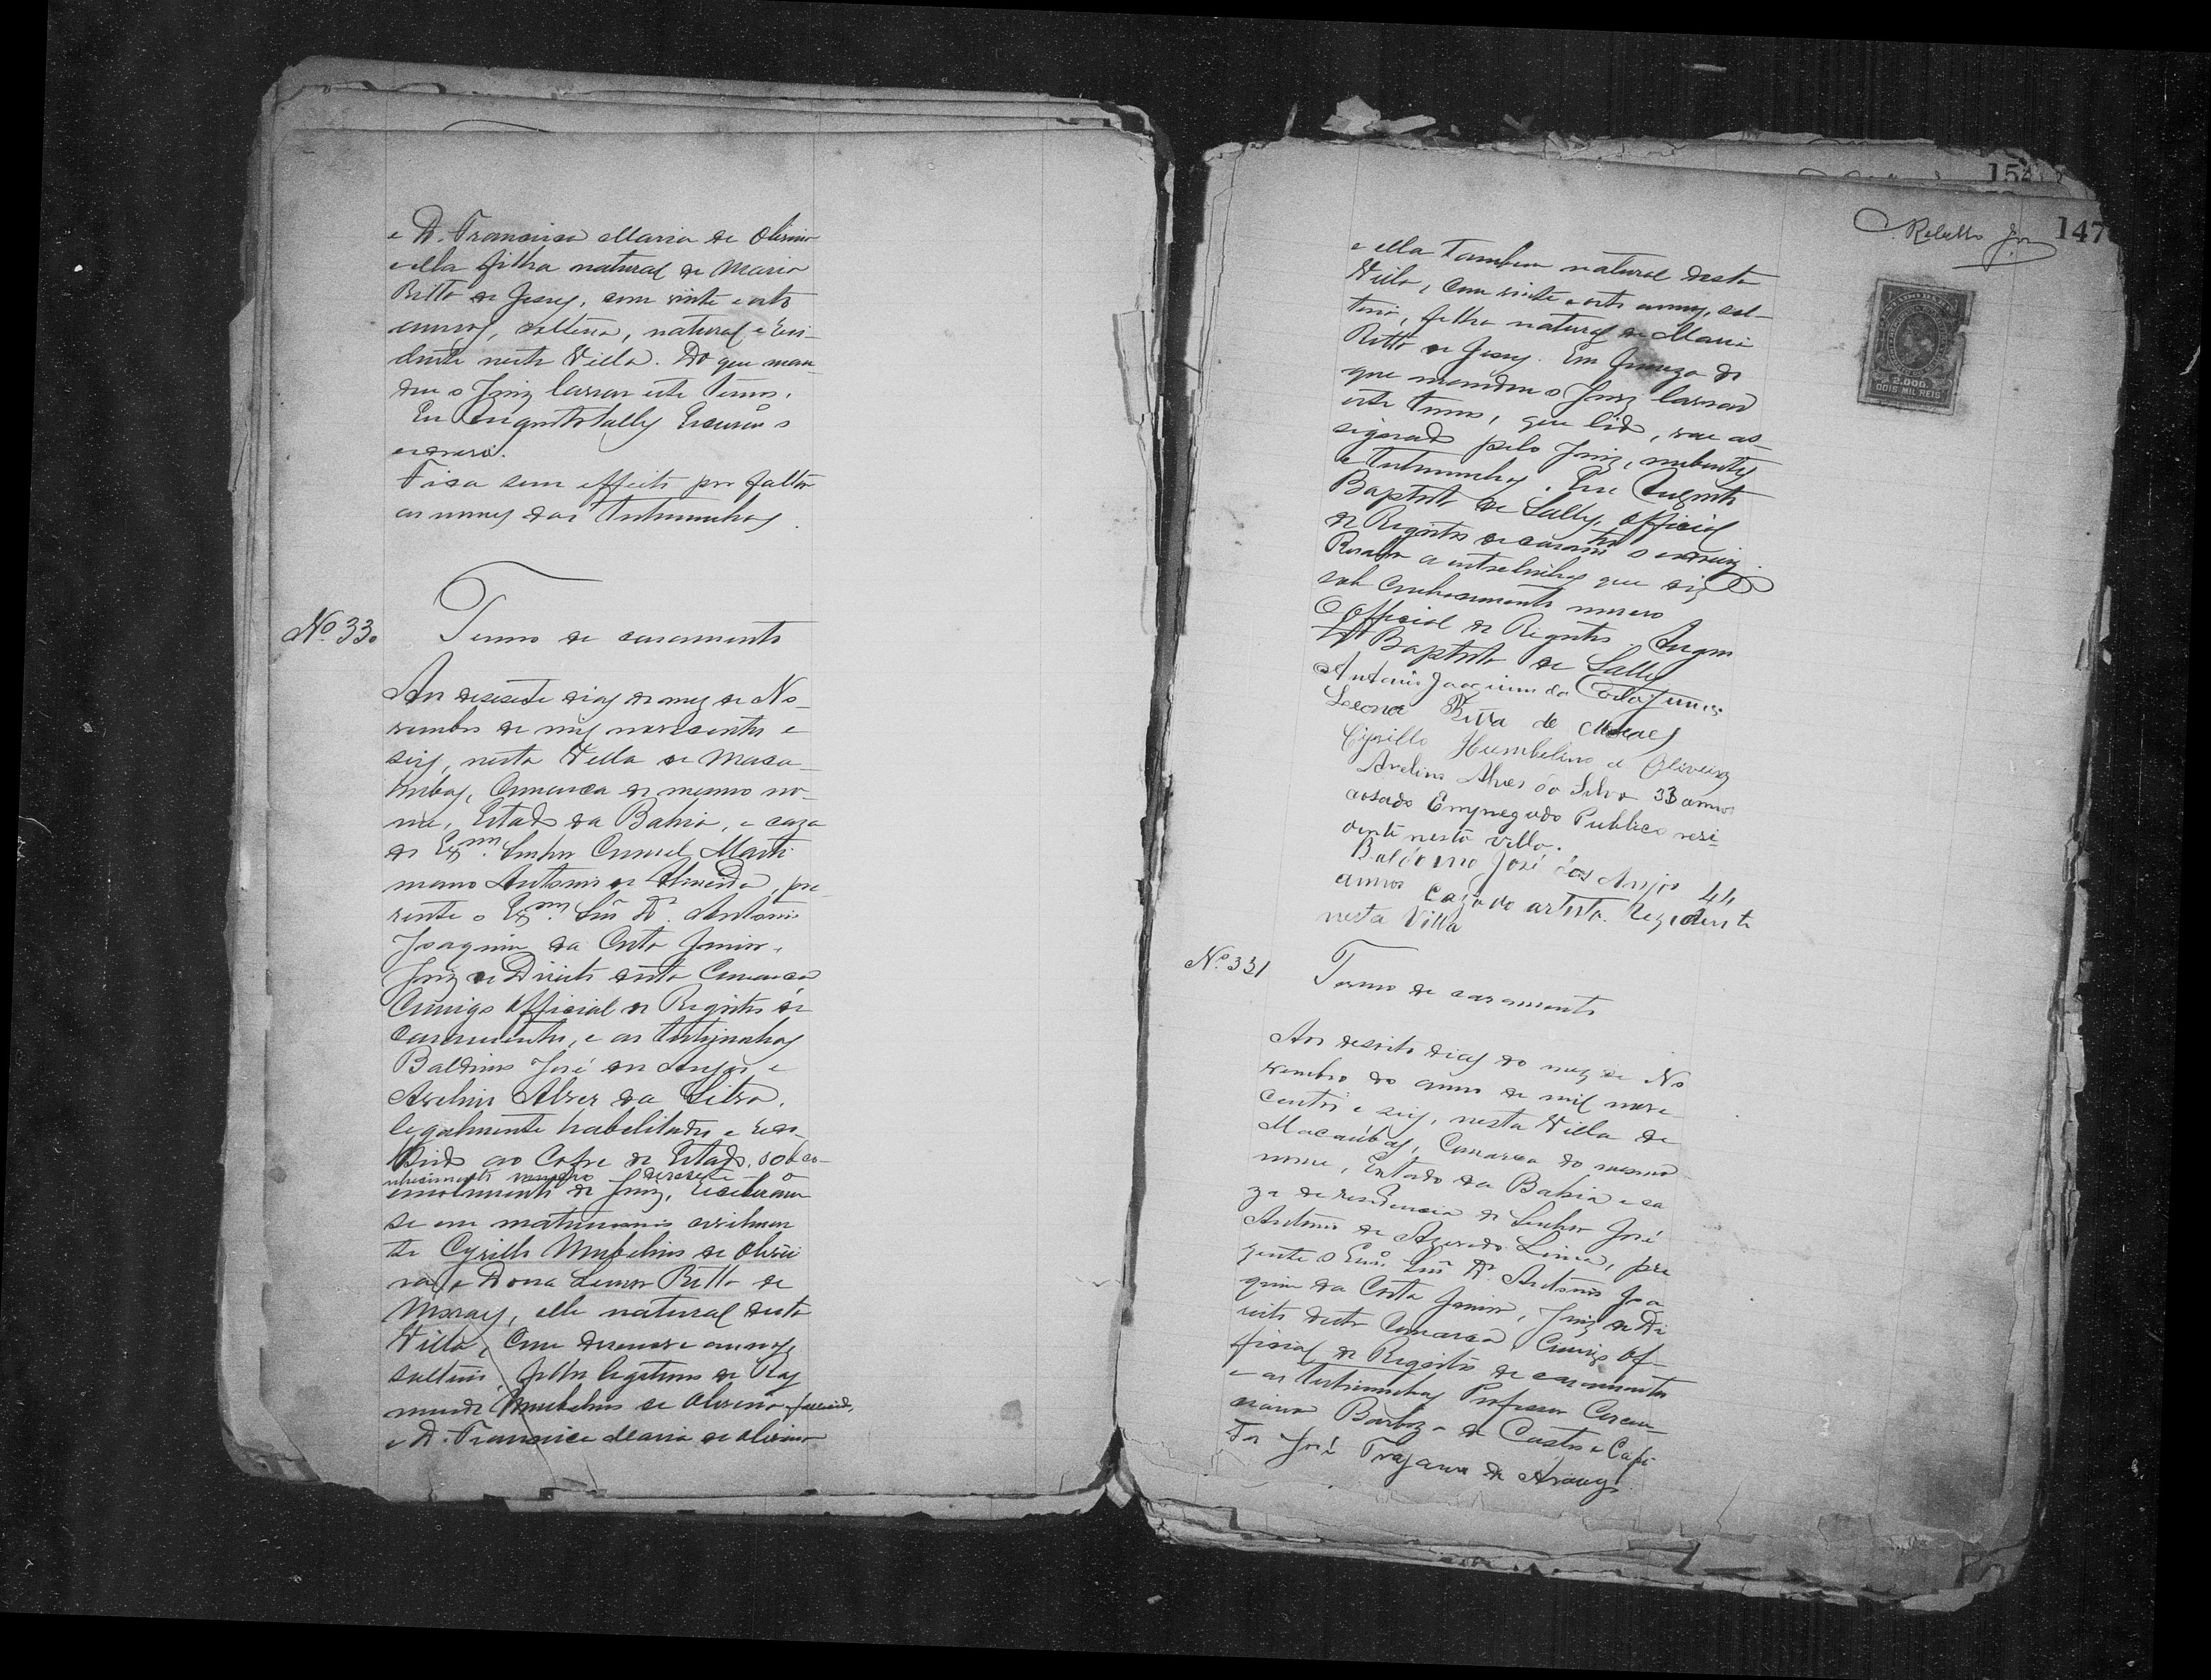 e D. Francisca Maria de Oliveira
e ella filha natural de Maria
Britto de Jesus, com vinte e oito
annos, solteira, natural e resi-
dente nesta Villa. Do que man-
dou o Juiz lavrar este termo.
Eu Augusto Lally Escrivão o
escrevi.
Fica sem effeito por falta
os nomes das testemunhas.
Nº 330
Termo de casamento
Aos desesete dias do mez de No-
vembro de mil novecentos e
seis, nesta Villa de Maca-
hubas, Comarca do mesmo no-
me, Estado da Bahia, e caza
do Exmº. Senhor Coronel Marti-
niano Antonio de Almeida, pre-
zente o Exmº. Snr. Dr. Antonio
Joaquim da Costa Junior,
Juiz de Direito desta Comarca
Comigo Official do Registro de
Casamentos, e as testemunhas
Baldoino José dos Anjos e
Avelino Alves da Silva,
legalmente habelitados e reco-
lhido ao Cofre do Estado, sob co-
nhecimento numero desesete o
emolumento do Juiz, receberam
se em matrimonio civilmen
te Cyrillo Umbelino de Olivei
ra e Dona Leonor Britto de
Moraes, elle natural desta
Villa, com desenove annos,
solteiro, filho legitimo de Ray
mundo Umbelino de Oliveira, fallecido,
e D. Francisca Maria de Oliveira
154
Rebello Jor
147
2.000
DOIS MIL REIS
e ella tambem natural desta
Villa, com vinte e oito annos, sol-
teira, filha natural de Maria
Britto de Jesus. Em firmeza do
que mandou o Juiz lavrar
este termo, que lido, vae as-
signado pelo Juiz, nubentes
e testemunhas. Eu Augusto
Baptista de Lally, official
do Registro de casamto o escrevi.
Resalvo a entrelinha que diz
sob conhecimento numero
O Official do Registro. Augus
to Baptista de Lally
Antonio Joaquim da Costa Junior
Leonor Britto de Moraes
Cyrillo Humbelino de Oliveira
Avelino Alves da Silva 33 annos
casado Empregado Publico resi-
dente nesta villa.
Baldoino José dos Anjos 44
annos cazado artista. Rezidente
nesta Villa
Nº 331
Termo de casamento
Aos desoito dias do mez de No
vembro do anno de mil nove
centos e seis, nesta Villa de
Macaúbas, Comarca do mesmo
nome, Estado da Bahia e ca
za de residencia do Senhor José
Antonio de Azevedo Lima, pre
zente o Exmº. Snr. Dr. Antonio Joa
quim da Costa Junior, Juiz de Di
reito desta Comarca Comigo Of-
ficial do Registro de casamentos
e as testemunhas Professor
Barboza de Castro e Capi
tão José Trajano de Araujo